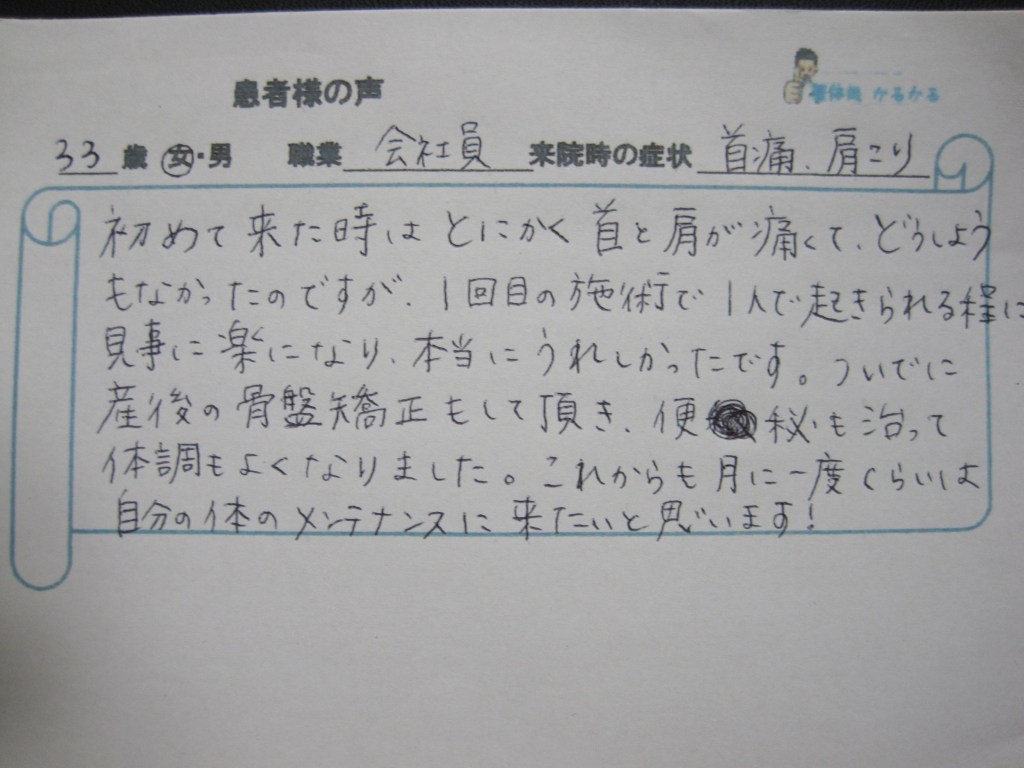 患者様の声
整体処 かるかる
33歳 女・男 職業 会社員 来院時の症状 首痛、肩こり
初めて来た時はとにかく首と肩が痛くて、どうしよう
もなかったのですが、1回目の施術で1人で起きられる程に
見事に楽になり、本当にうれしかったです。ついでに
産後の骨盤矯正もして頂き、便秘も治って
体調もよくなりました。これからも月に一度くらいは
自分の体のメンテナンスに来たいと思います!